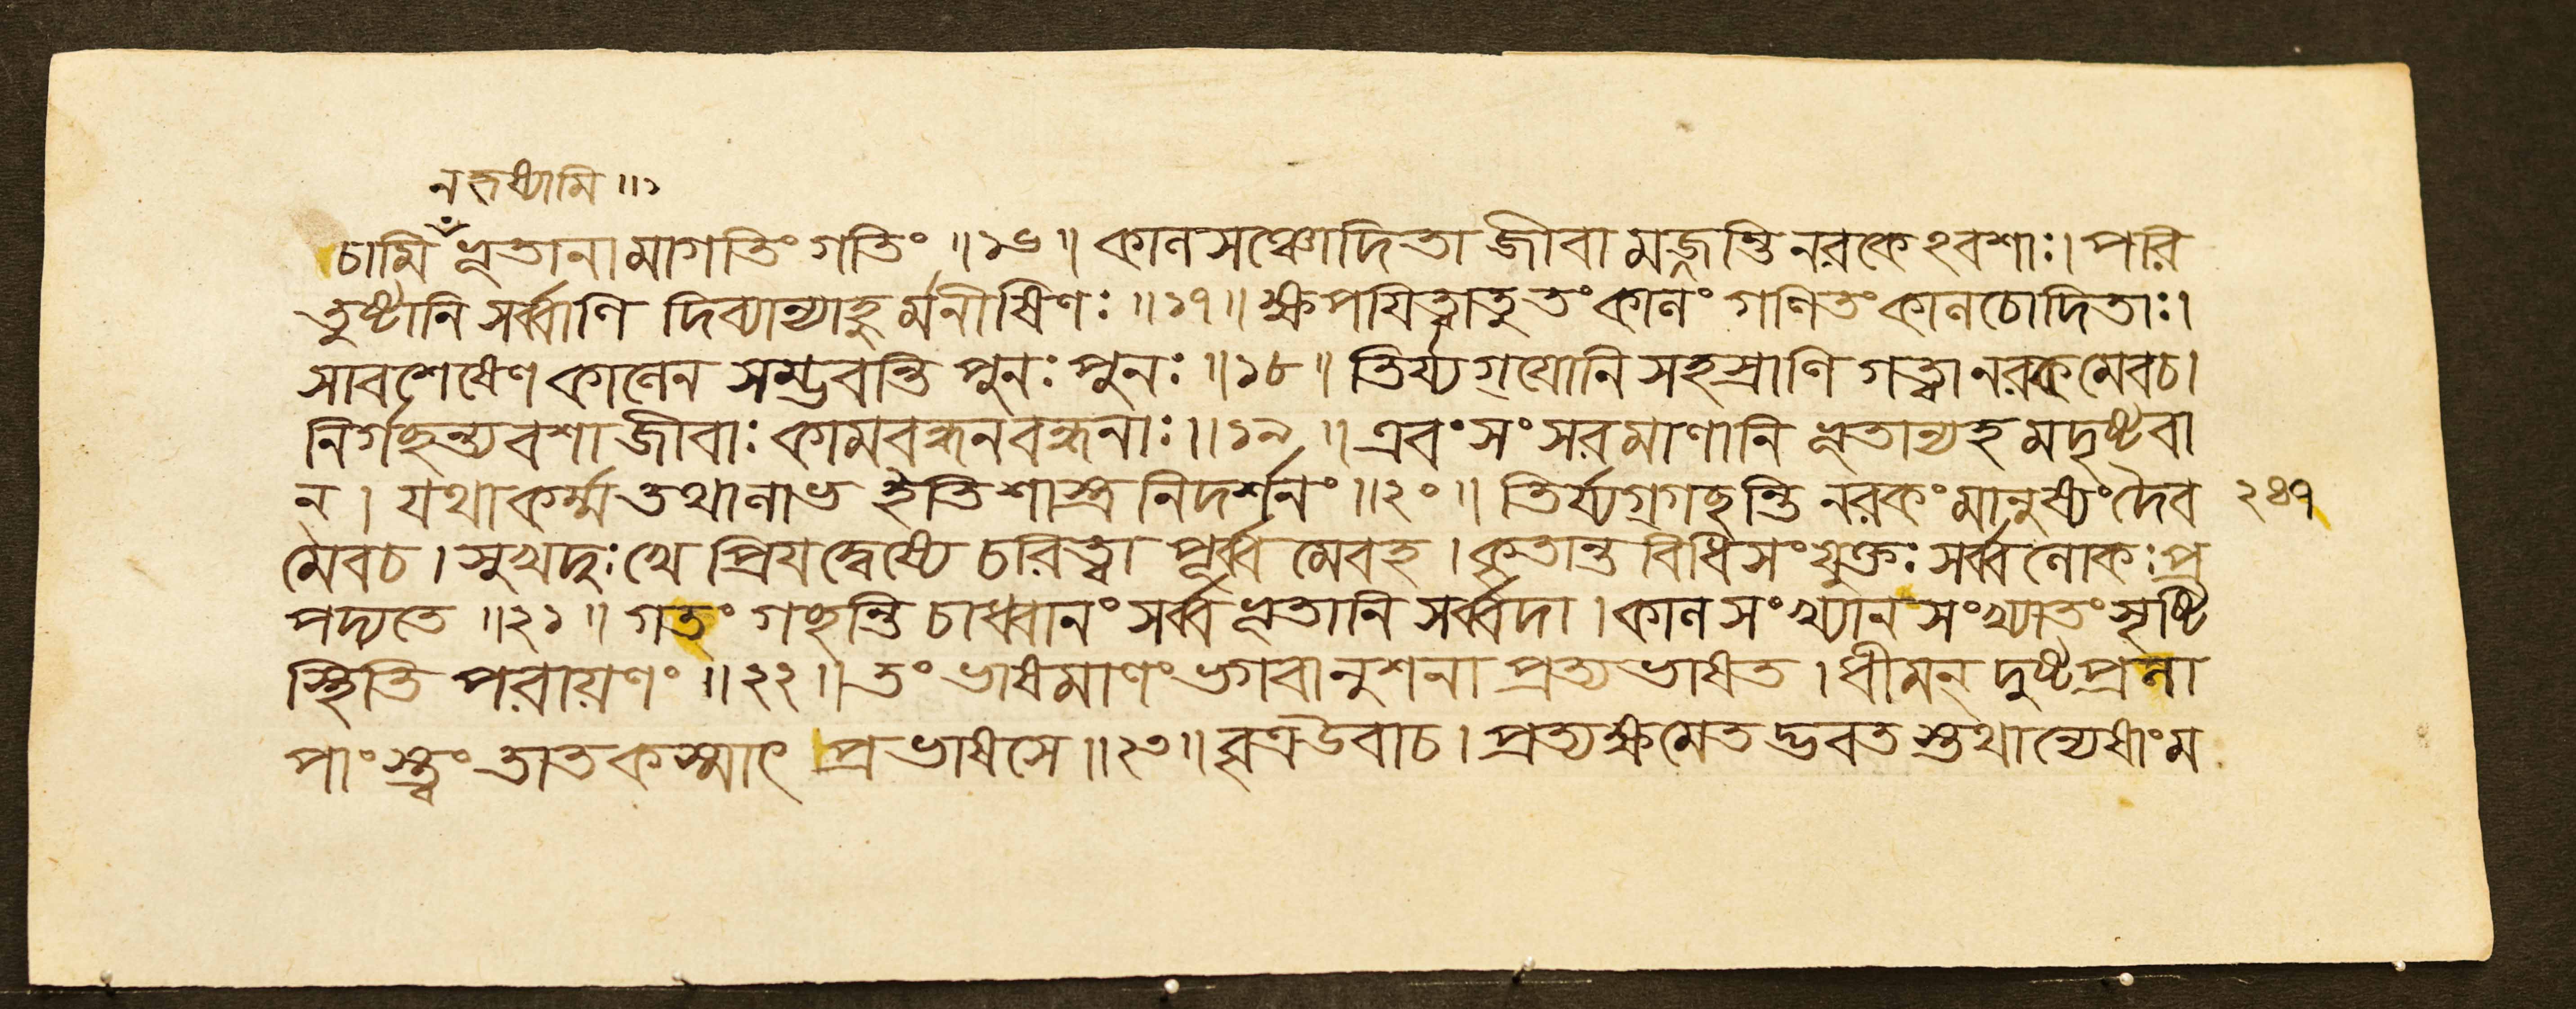 ন হৃষ্যামি ॥ ১
চামি ভূতানামাগতিং গতিং ॥ ১৬ ॥ কালসঞ্চোদিতা জীবা মজ্জন্তি নরকেঽবশাঃ । পরি
তুষ্টানি সর্ব্বাণি দিব্যান্যাহুর্মনীষিণঃ ॥ ১৭ ॥ ক্ষপয়িত্বা তু তং কালং গণিতং কালচোদিতাঃ ।
সাবশেষেণ কালেন সম্ভবন্তি পুনঃ পুনঃ ॥ ১৮ ॥ তির্য্যগ্যোনি সহস্রাণি গত্বা নরকমেব চ ।
নির্গচ্ছন্ত্যবশা জীবাঃ কামবন্ধনবন্ধনাঃ ॥ ১৯ ॥ এবং সংসরমাণানি ভূতান্যহমদৃষ্টবা
ন । যথা কর্ম্ম তথা লাভ ইতি শাস্ত্রনিদর্শনং ॥ ২০ ॥ তির্য্যগ্গচ্ছন্তি নরকং মানুষ্যং দৈব ২৪৭
মেব চ । সুখদুঃখে প্রিয়দ্বেষ্যে চরিত্বা পূর্ব্বমেবহ । কৃতান্তবিধিসংযুক্তঃ সর্ব্বলোকঃ প্র
পদ্যতে ॥ ২১ ॥ গতং গচ্ছন্তি চাধ্বানং সর্ব্বভূতানি সর্ব্বদা । কালসংখ্যানসংখ্যাতং সৃষ্টি
স্থিতি পরায়ণং ॥ ২২ ॥ তং ভাষমাণং ভগবানুশনা প্রত্যভাষত । ধীমন্ দুষ্টপ্রলা
পাংস্ত্বং তাত কস্মাৎ প্রভাষসে ॥ ২৩ ॥ বৃত্র উবাচ । প্রত্যক্ষমেতদ্ভবতস্তথান্যেষাং ম